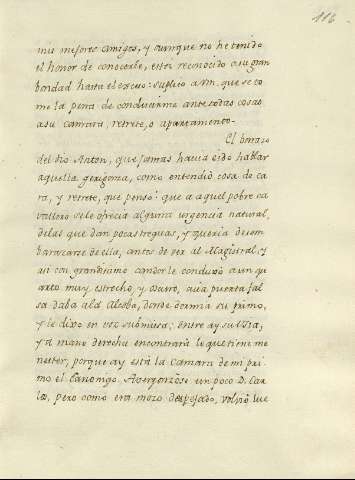 116
mis mejores amigos, y aunque no he tenido
el honor de conocerle, estoi reconocido a su gran
bondad hasta el exceso: suplico a Vm. que se to
me la pena de conducirme ante todas cosas
a su camara, retrete, o apartamento-
El bonazo
del tio Anton, que jamas havia oido hablar
aquella gerigonza, como entendió cosa de ca
ra, y retrete, que pensò: que a aquel pobre ca
vallero se le ofrecia alguna urgencia natural,
de las que dan pocas treguas, y queria desem
barazarse de ella, antes de ver al Magistral, y
asi con grandisimo candor le conduxo a un qu
arto muy estrecho, y oscuro, cuia puerta fal
sa daba a la Alcoba, donde dormia su primo,
y le dixo en voz submisa; entre ay su Vsia,
y a mano derecha encontrarà lo que tiene me
nester; porque ay està la Camara de mi pri
mo el Canonigo. Avergonzose un poco D. Car
los, pero como era mozo despejado, volviò lue